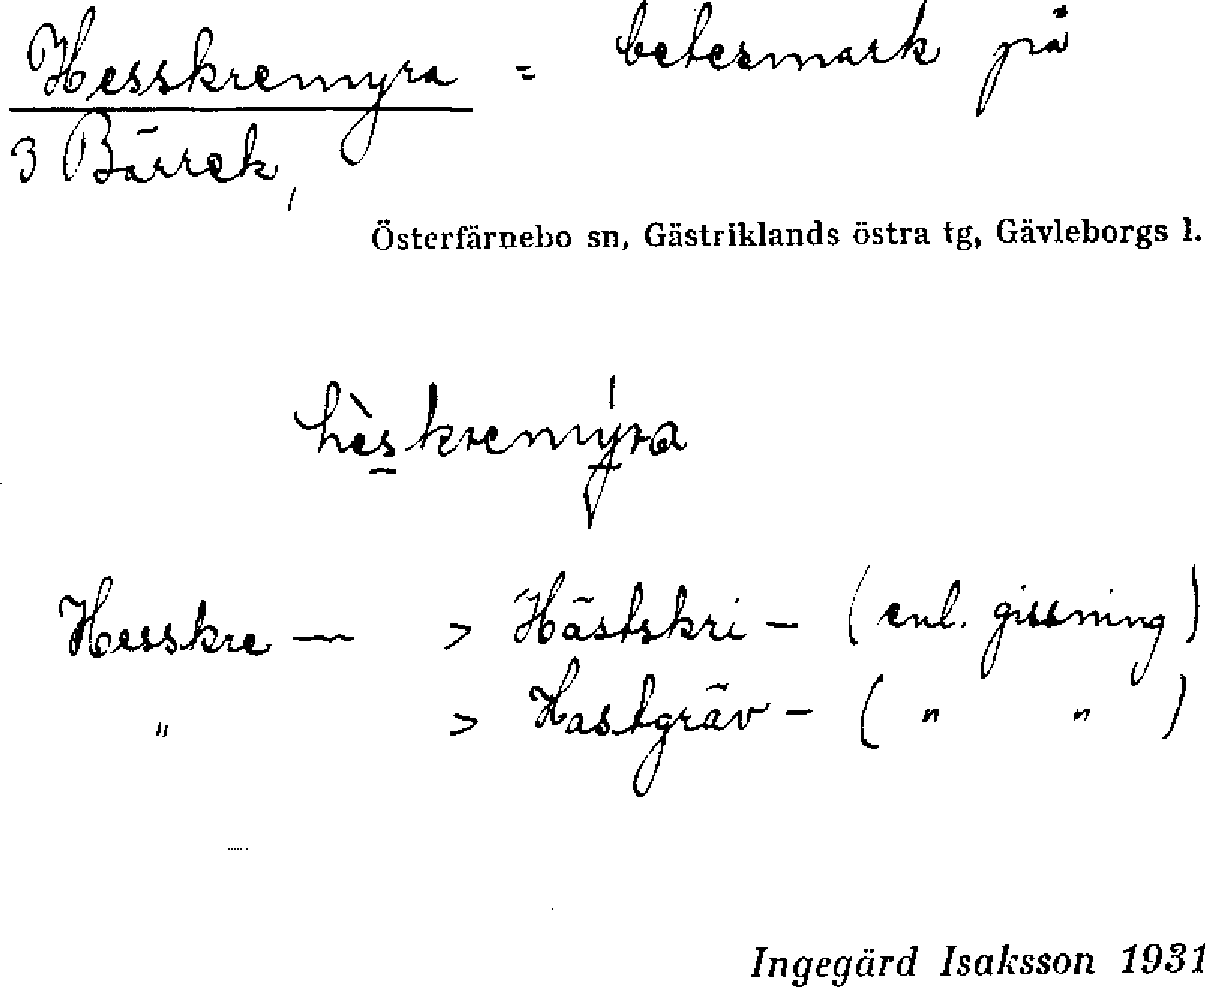 Hesskremyra = betesmark på
3 Bärrek,
Österfärnebo sn, Gästriklands östra tg, Gävleborgs l.
hèskremyra
Hesskre — > Hästskri – (enl. gissning)
" > Hastgräv – ( " " )
Ingegärd Isaksson 1931